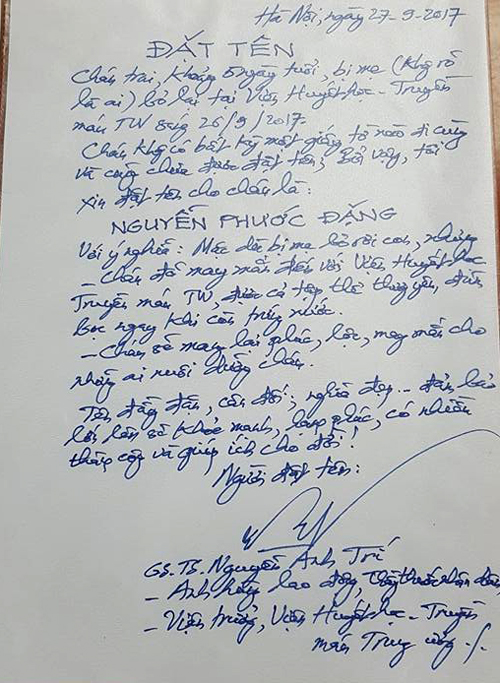 Hà Nội, ngày 27-9-2017
ĐẶT TÊN
Cháu trai, khoảng 5 ngày tuổi, bị mẹ (khg rõ
là ai) bỏ lại tại Viện Huyết học - Truyền
máu TW sáng 26/9/2017
Cháu khg có bất kỳ một giấy tờ nào đi cùng
và cũng chưa được đặt tên; Bởi vậy, tôi
xin đặt tên cho cháu là:
NGUYỄN PHƯỚC ĐĂNG
Với ý nghĩa: Mặc dù bị mẹ bỏ rơi con, nhưng
- Cháu đã may mắn đến với Viện Huyết học
Truyền máu TW, được cả tập thể thương yêu, đùm
bọc ngay khi còn trứng nước.
- Cháu sẽ mang lại phúc, lộc, may mắn cho
những ai nuôi dưỡng cháu.
Tên đầy đặn, cân đối; nghĩa đẹp - đảm bảo
lớn lên sẽ khỏe mạnh, hạnh phúc, có nhiều
thành công và giúp ích cho đời!
Người đặt tên:
GS.TS. Nguyễn Anh Trí
- Anh hùng lao động, Thầy thuốc nhân dân
- Viện trưởng, Viện Huyết học - Truyền
máu Trung ương ./.